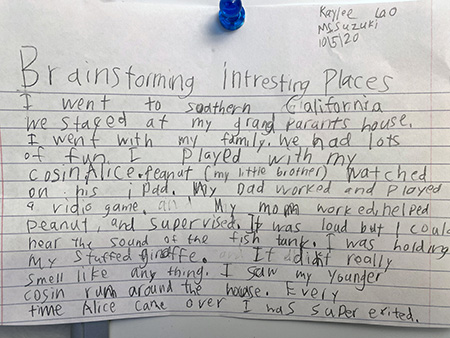 Kaylee Lao
Ms Suzuki
10/5/20
Brainstorming Intresting Places
I went to southern California
We stayed at my grand parants house.
I went with my family. We had lots
of fun. I played with my
cosin Alice. Peanut (my little brother) watched
on his ipad. My Dad worked and played
a vidio game. an My mom worked, helped
peanut, and supervised. It was loud but I could
hear the sound of the fish tank. I was holding
my stuffed giraffe. and It didn't really
smell like any thing. I saw my younger
cosin run around the house. Every
time Alice came over I was super exited.